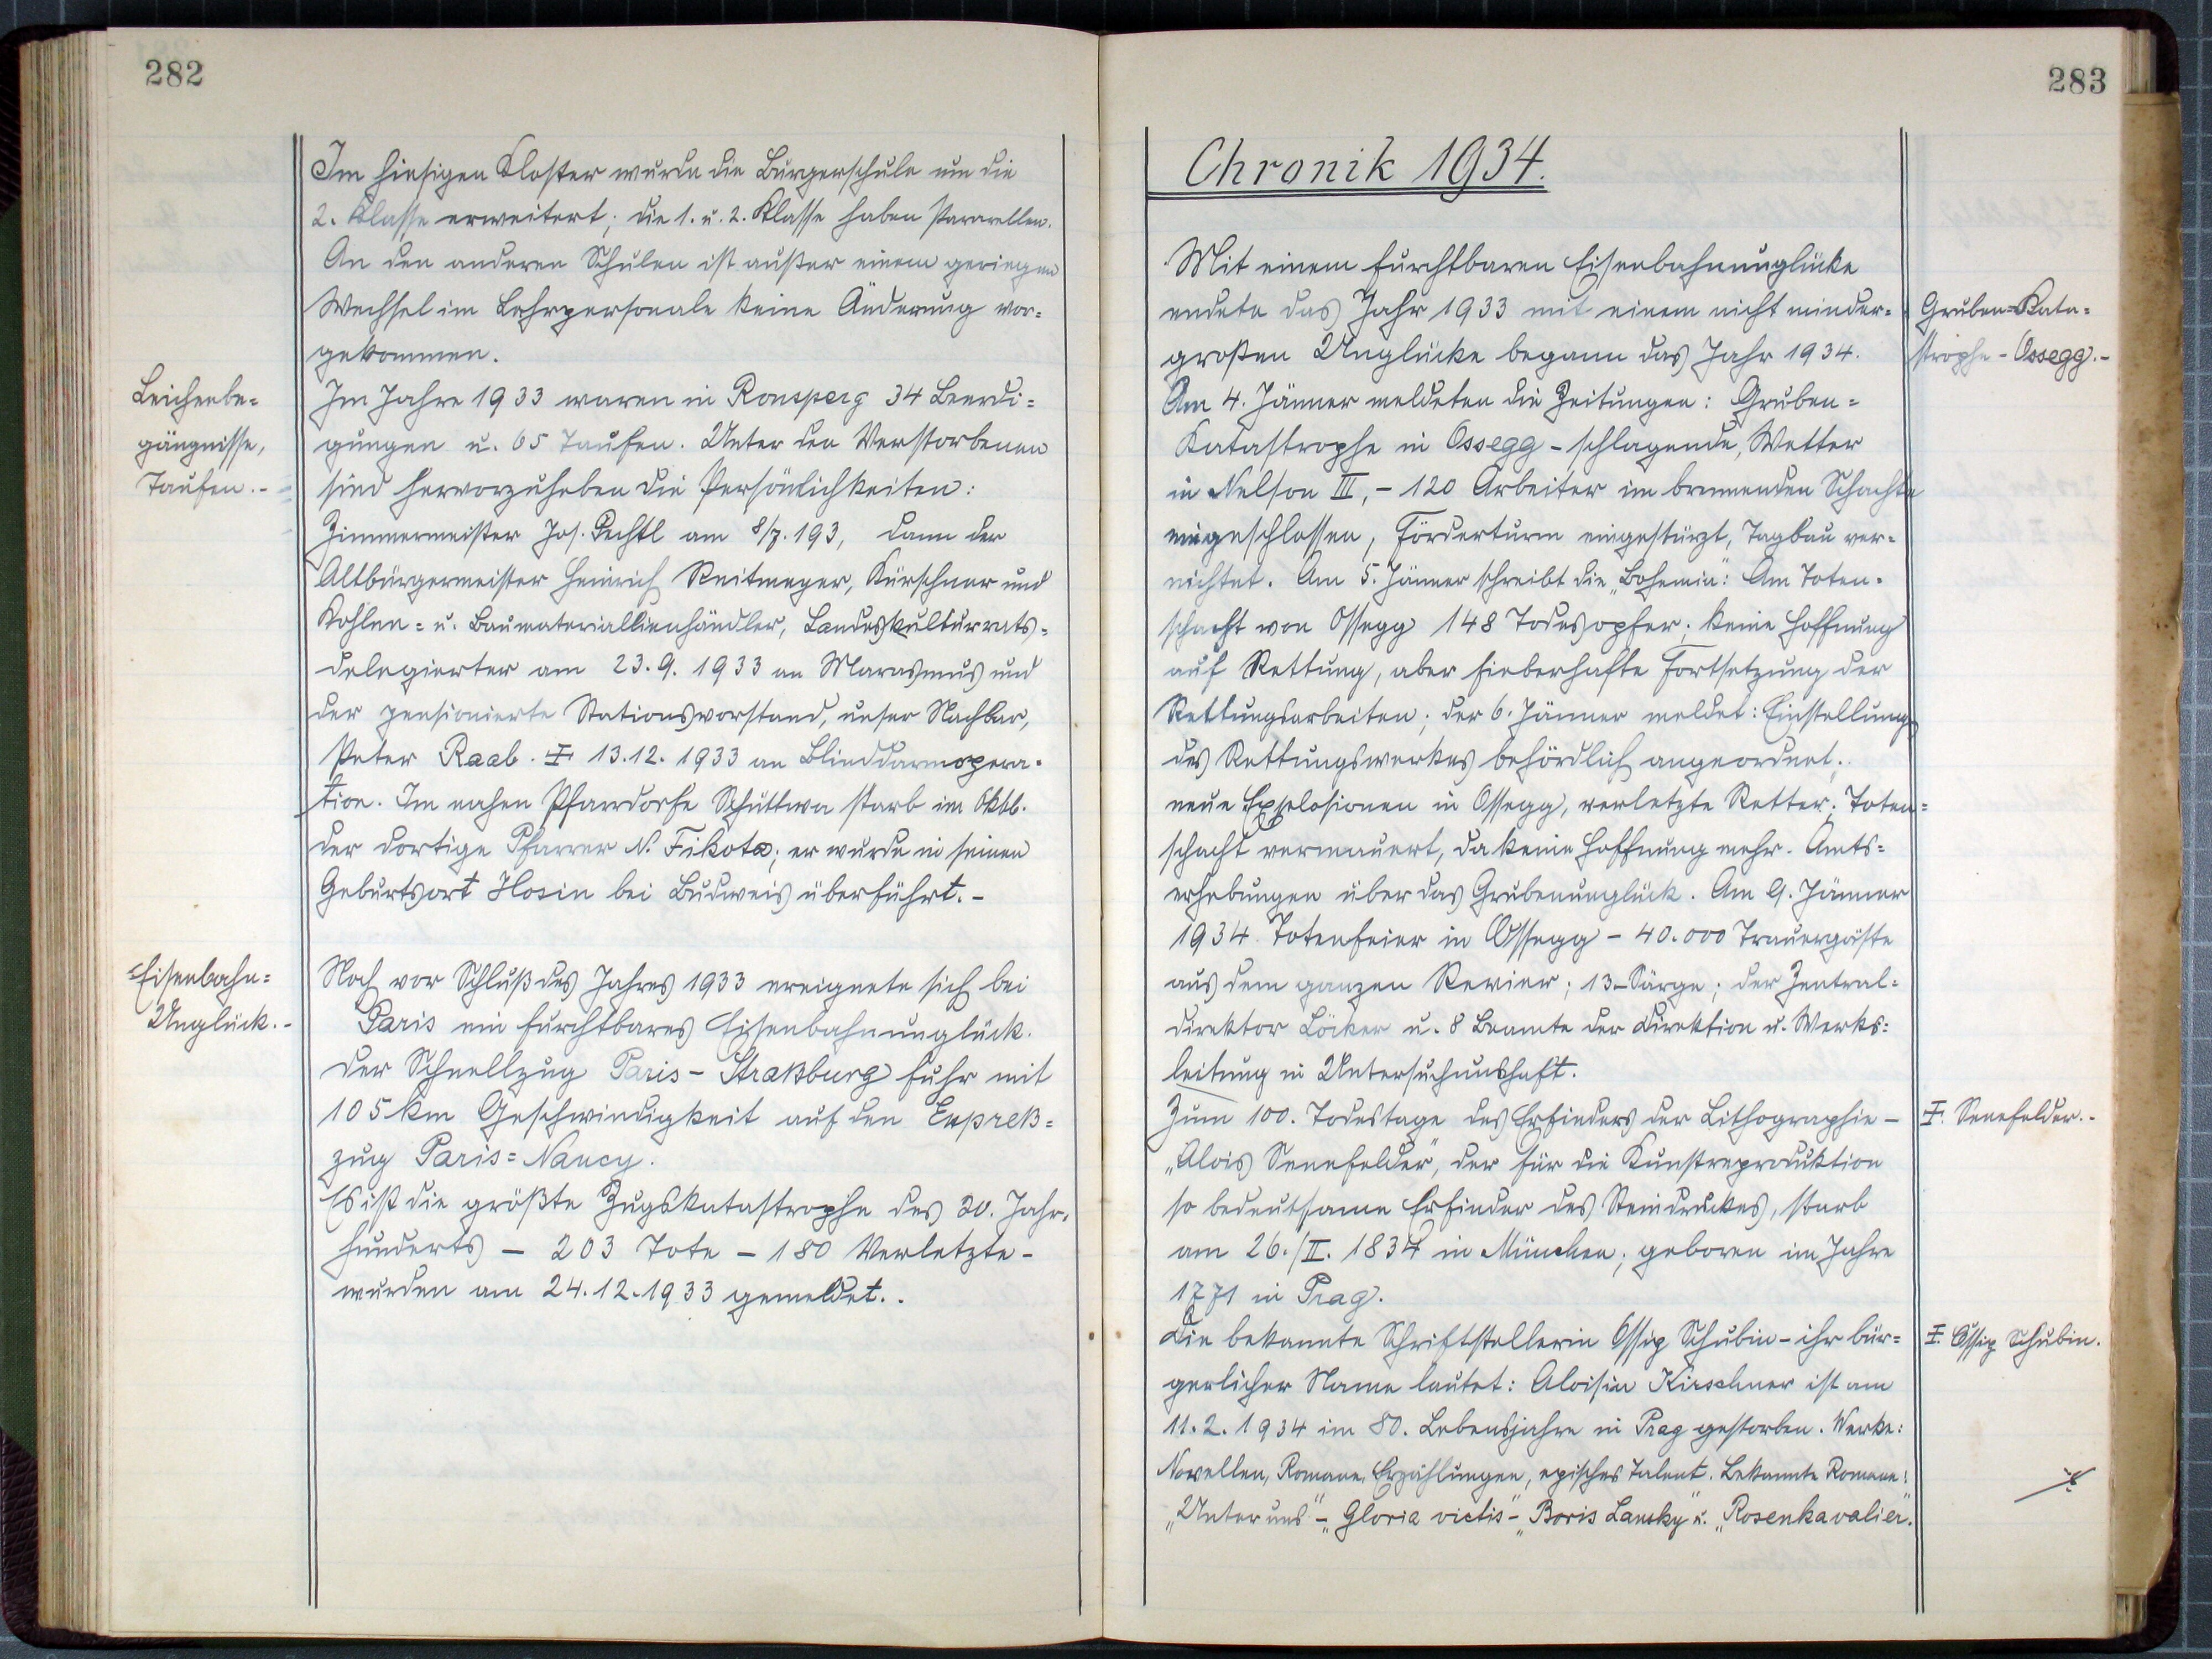 282
Im hiesigen Kloster wurde die Bürgerschule um die
2. Klasse erweitert; die 1. u. 2. Klasse haben Pararellen.
An den anderen Schulen ist außer einem geringen
Wechsel im Lehrpersonale keine Änderung vor=
gekommen.
Leichenbe=
gängnisse,
Taufen.-
Im Jahre 1933 waren in Ronsperg 34 Beerdi=
gungen u. 65 Taufen. Unter den Verstorbenen
sind hervorzuheben die Persönlichkeiten:
Zimmermeister Jos. Pechtl am 8/7. 193, dann der
Altbürgermeister Heinrich Reitmeyer, Kürschner und
Kohlen= u. Baumateriallienhändler, Landeskulturrats=
delegierter am 23.9. 1933 an Marasmus und
der pensionierte Stationsvorstand, unser Nachbar,
Peter Raab. ‡ 13.12. 1933 an Blinddarmopera=
tion. Im nahen Pfarrdorfe Schüttwa starb im Oktb.
der dortige Pfarrer N. Fikota; er wurde in seinen
Geburtsort Hosin bei Budweis überführt.-
Eisenbahn=
Unglück.-
Noch vor Schluß des Jahres 1933 ereignete sich bei
Paris ein furchtbares Eisenbahnunglück.
Der Schnellzug Paris - Straßburg fuhr mit
105 km Geschwindigkeit auf den Expreß=
zug Paris=Nancy.
Es ist die größte Zugskatastrophe des 20. Jahr=
hunderts - 203 Tote - 180 Verletzte -
wurden am 24.12.1933 gemeldet..
283
Chronik 1934.
Mit einem furchtbaren Eisenbahnunglücke
endete das Jahr 1933 mit einem nicht minder=
großen Unglücke begann das Jahr 1934.
Gruben=Kata=
strophe - Ossegg.-
Am 4. Jänner meldeten die Zeitungen: Gruben=
Katastrophe in Ossegg - schlagende, Wetter
in Nelson III, - 120 Arbeiter im brennenden Schachte
eingeschlossen, Förderturm eingestürzt, Tagbau ver=
nichtet. Am 5. Jänner schreibt die „Bohemia": Am Toten=
schacht von Ossegg 148 Todesopfer; keine Hoffnung
auf Rettung, aber fieberhafte Fortsetzung der
Rettungsarbeiten; der 6. Jänner meldet: Einstellung
des Rettungswerkes behördlich angeordnet;
neue Explosionen in Ossegg, verletzte Retter; Toten=
schacht vermauert, da keine Hoffnung mehr. Amts=
erhebungen über das Grubenunglück. Am 9. Jänner
1934 Totenfeier in Ossegg - 40.000 Trauergäste
aus dem ganzen Revier; 13 Särge; der Zentral=
direktor Löcker u. 8 Beamte der Direktion u. Werks=
leitung in Untersuchunshaft.
Zum 100. Todestage des Erfinders der Lithographie -
‡. Senefelder.-
„Alois Senefelder", der für die Kunstreproduktion
so bedeutsame Erfinder des Steindruckes, starb
am 26./II. 1834 in München; geboren im Jahre
1771 in Prag.
Die bekannte Schriftstellerin Ossip Schubin - ihr bür=
‡. Ossip Schubin.
gerlicher Name lautet: Aloisia Kirschner ist am
11.2. 1934 im 80. Lebensjahre in Prag gestorben. Werke:
Novellen, Romane, Erzählungen, episches Talent. Bekannte Romane:
„Unter uns" - „Gloria victis" - „Boris Lensky" u. „Rosenkavalier".